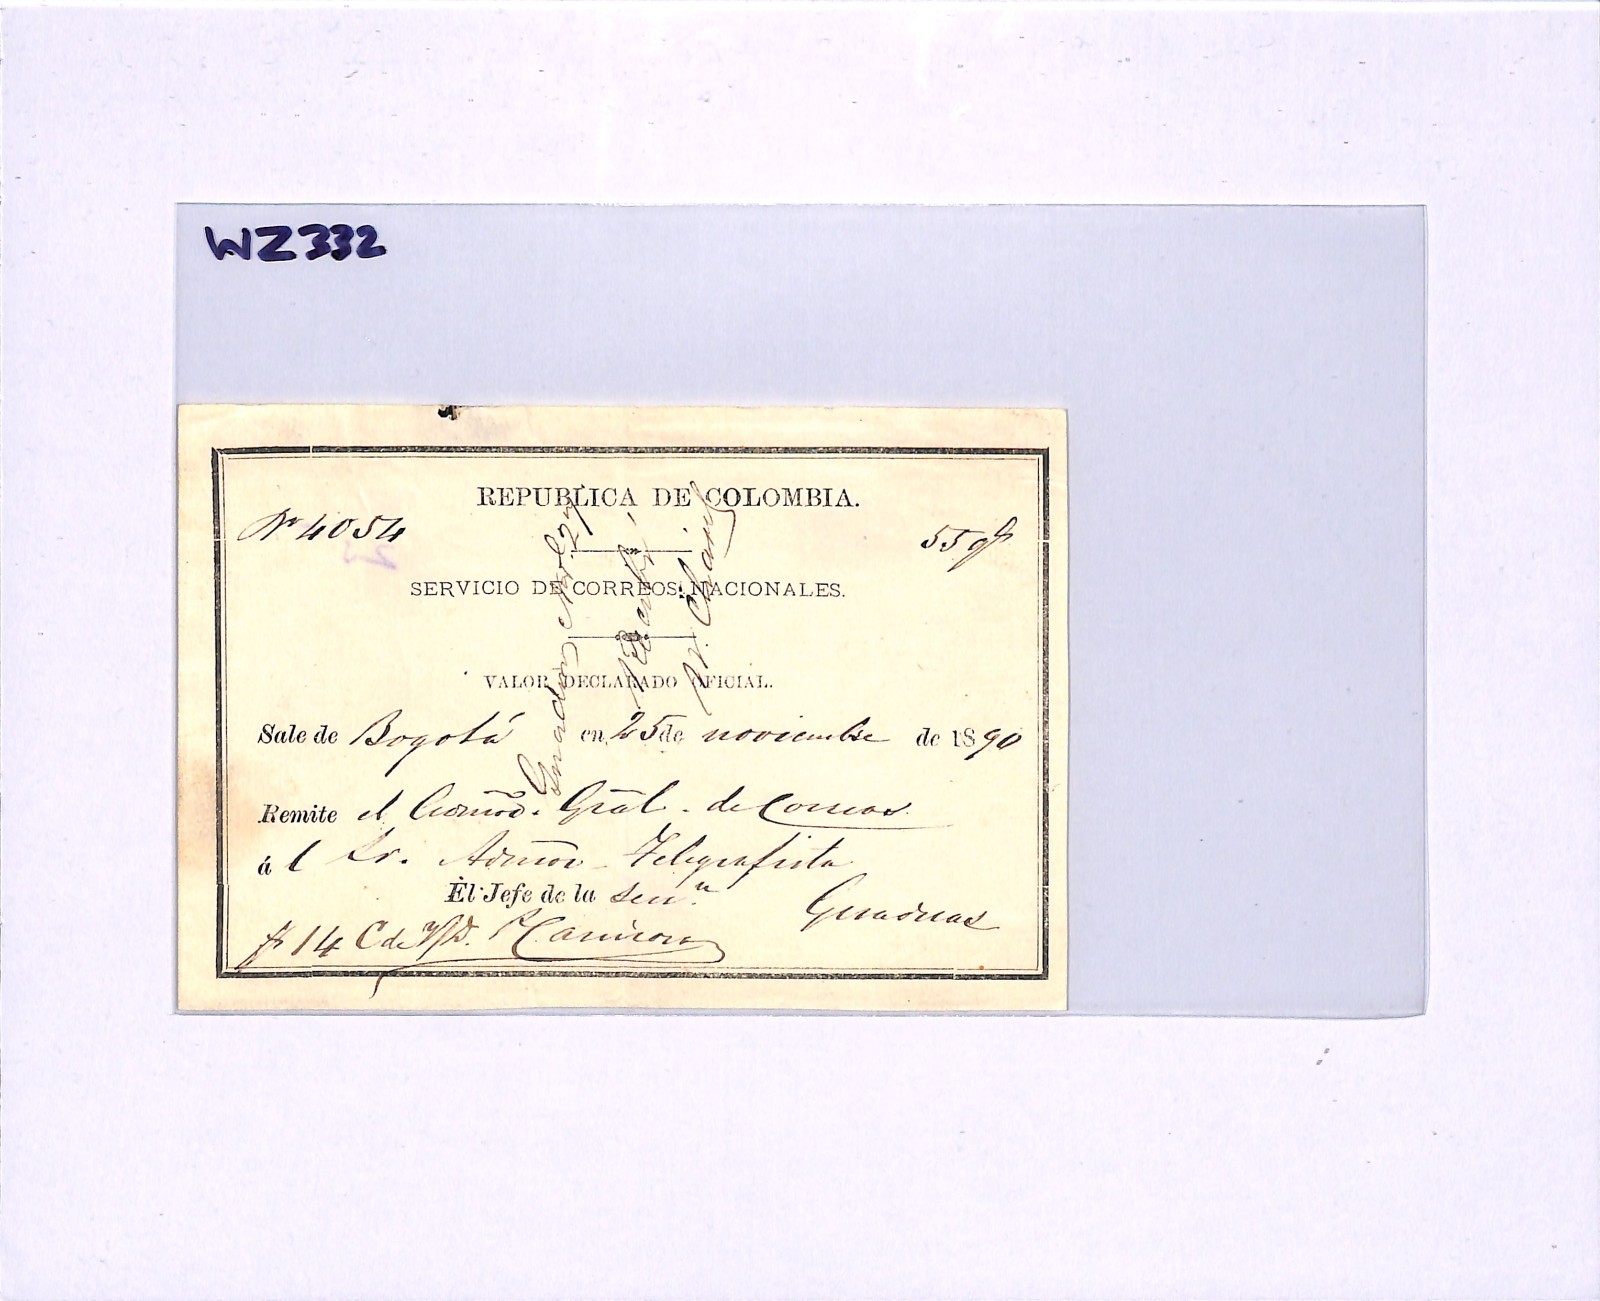 WZ332
REPUBLICA DE COLOMBIA.
Nº 4054
55 gs
SERVICIO DE CORREOS NACIONALES.
VALOR DECLARADO OFICIAL.
Sale de Bogotá en 25 de noviembre de 1890
Remite el Gral. de Correos
á l Sr. Admor Telegrafista
El Jefe de la Secn.
Guaduas
$ 14 C de
Guaduas Nov. 27
Recibí